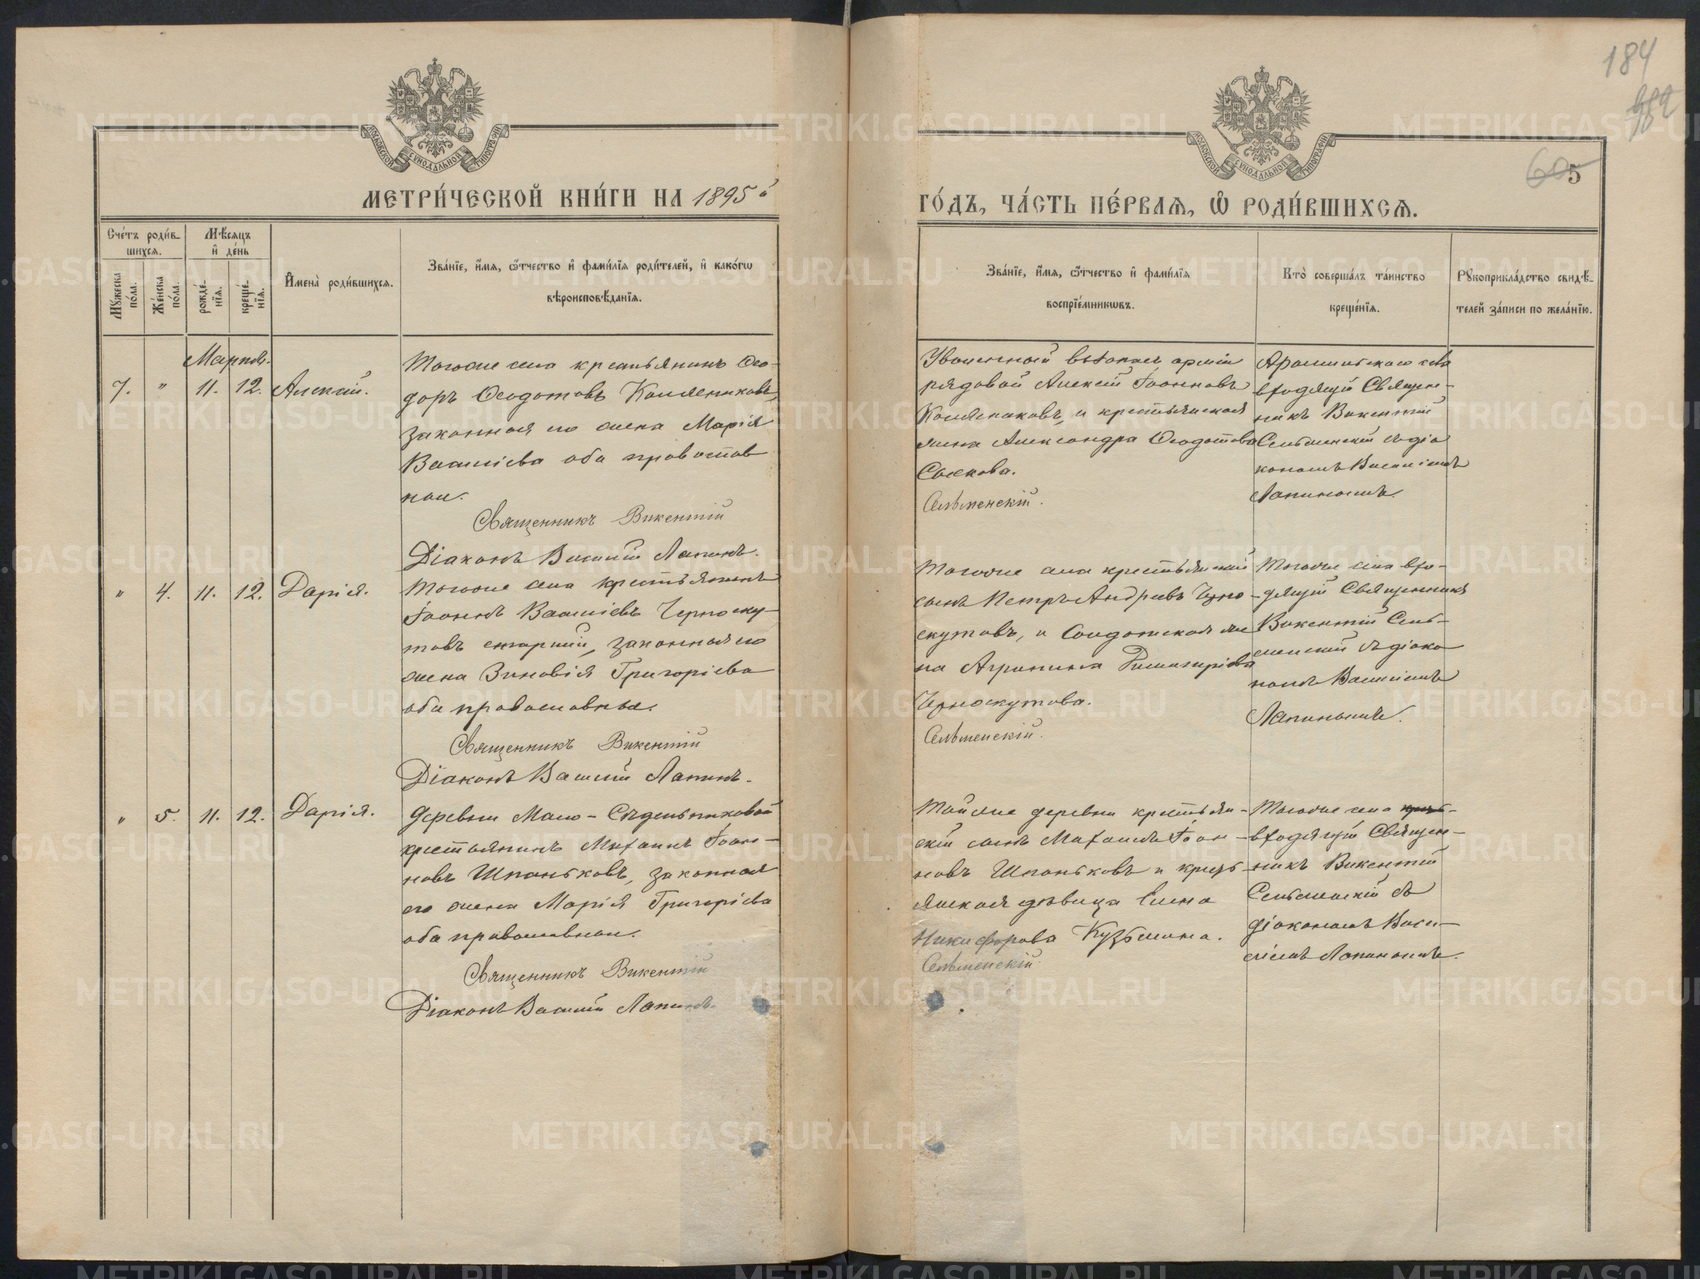 184
5
МЕТРИ́ЧЕСКОЙ КНИ́ГИ НА 1895й
ГО́ДЪ, ЧА́СТЬ ПЕ́РВАЯ, Ѽ РОДИ́ВШИХСЯ.
Сче́тъ роди́в-
шихся.
Мꙋ́жеска по́ла.
Же́нска по́ла.
Мѣ́сяцъ и҆ де́нь
рожде́-нїя.
креще́-нїя.
И҆мена̀ роди́вшихся.
Зва́нїе, и҆́мя, ѻ҆́тчество и҆ фами́лїя роди́телей, и҆ како́гѡ
вѣроисповѣ́данїя.
Зва́нїе, и҆́мя, ѻ҆́тчество и҆ фами́лїя
воспрїе́мникѡвъ.
Кто̀ соверша́лъ та́инство
креще́нїя.
Рꙋкоприкла́дство свидѣ́-
телей за́писи по жела́нїю.
Мартъ.
7. " 11. 12. Алексій.
Тогоже села крестьянинъ Ѳео-
доръ Ѳеодотовъ
законная его жена Марія
Василіева оба православ
ныи.
Священникъ Викентій
Діаконъ Василій Лапинъ.
Уволенный въ запасъ арміи
рядовой Алексій Іоанновъ
и крестьянская
жена Александра Ѳеодотова
Сельменскій.
Арамильского села
входящій Священ-
никъ Викентій
Сельменскій съ діа
кономъ Василіемъ
Лапинымъ.
" 4. 11. 12. Дарія.
Тогоже села крестьянинъ
Іоаннъ Василіевъ Черноску-
товъ старшій, законная его
жена Зиновія Григоріева
оба православныи.
Священникъ Викентій
Діаконъ Василій Лапинъ.
Тогоже села крестьянскій
сынъ Петръ Андреевъ Черно-
скутовъ, и Солдатская же
на Агрипина
Черноскутова.
Сельменскій.
Тогоже села вхо-
дящій Священникъ
Викентій Сель-
менскій съ діако
номъ Василіемъ
Лапинымъ.
" 5. 11. 12. Дарія.
Деревни Мало-Сѣдельниковой
крестьянинъ Михаилъ Іоан-
новъ Шпаньковъ, законная
его жена Марія Григоріева
оба православныи.
Священникъ Викентій
Діаконъ Василій Лапинъ.
Тойже деревни крестьян-
скій сынъ Михаилъ Іоан-
новъ Шпаньковъ и кресть-
янская дѣвица Елена
Никифорова Кузьмина.
Сельменскій.
Тогоже села
входящій Священ-
никъ Викентій
Сельменскій съ
діакономъ Васи-
ліемъ Лапинымъ.
METRIKI.GASO-URAL.RU